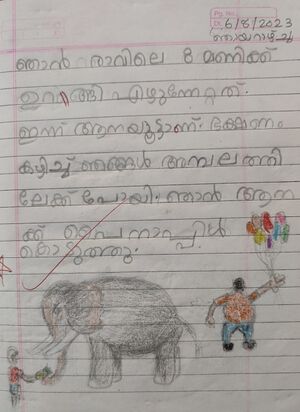 Pg No:
Dt. 6/8/2023
ഞായറാഴ്ച
ഞാൻ രാവിലെ 8 മണിക്ക്
ആണ് എഴുന്നേറ്റത്.
ഇന്ന് ആനയൂട്ടാണ്. ഭക്ഷണം
കഴിച്ച് ഞങ്ങൾ അമ്പലത്തി
ലേക്ക് പോയി. ഞാൻ ആന
ക്ക് പൈനാപ്പിൾ
കൊടുത്തു.